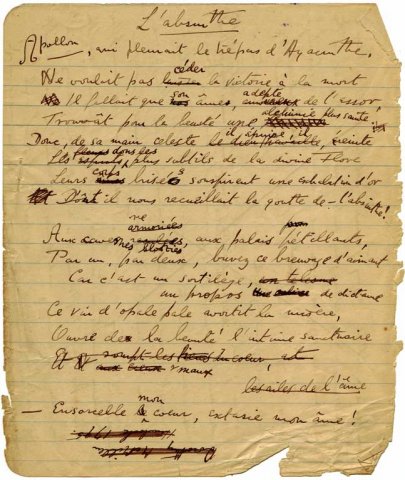 L'absinthe
Apollon, qui pleurait le trépas d'Hyacinthe,
Ne voulait pas céder la victoire à la mort
Il fallait que son âme, adepte de l'essor,
Trouvât pour la beauté une alchimie plus sainte
Donc, de sa main céleste il épuise, il éreinte
Les dons les plus subtils de la divine Flore
Leurs corps brisés soupirent une exhalation d'or
Dont il nous recueillait la goutte de - l'absinthe!
Aux caves blotties, aux palais pétillants,
Par un, par deux, buvez ce breuvage d'aimant
Car c'est un sortilège,
un propos de dictame
Ce vin d'opale pale avortit la misère,
Ouvre de la beauté l'intime sanctuaire
- Ensorcelle mon cœur, extasie mon âme!